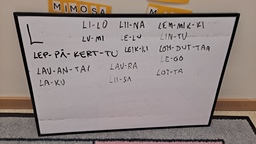 MIMOSA
L
LI-LO LII-NA LEM-MIK-KI
LU-MI LE-LU LIN-TU
LEP-PÄ-KERT-TU LEIK-KI LOH-DUT-TAA
LE-GO
LAU-AN-TAI LAU-RA LOI-TA
LA-KU LII-SA